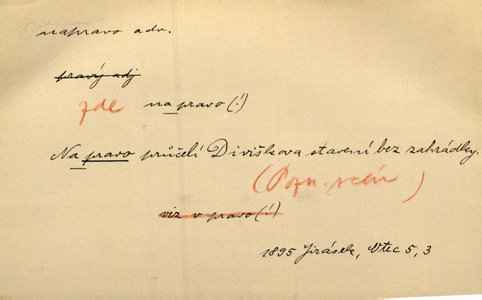 napravo adv.
pravý adj
zde na pravo (!)
Na pravo průčelí Diviškova stavení bez zahrádky.
(Pozn. scén)
viz v pravo (!)
1895 Jirásek, Otec 5, 3